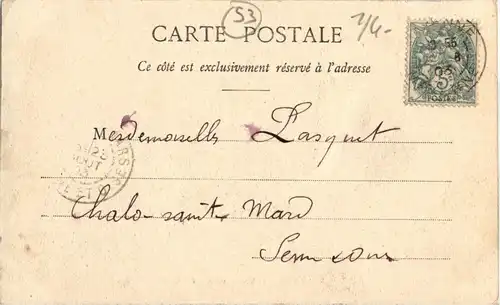 53
1/4-
CARTE POSTALE
Ce côté est exclusivement réservé à l'adresse
Mesdemoiselles Lasquet
Chalo-saint-Mard
Seine & Oise